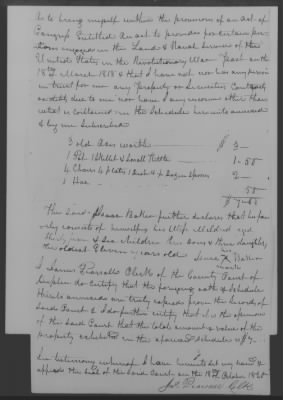 as to bring myself within the provisions of an act of
Congress Entitled An act to provide for certain per-
sons engaged in the Land & Naval Service of the
United States in the Revolutionary War Passed on the
18th March 1818 & that I have not nor has any person
in trust for me any Property or Securities Contracts
or debts due to me nor have I any income other than
what is contained in the Schedule hereunto annexed
& by me Subscribed
3 old axes worth $ 3 -
1 Pot 1 Skillet & Small Kettle 1-50
4 Chairs 4 plates 1 Dish & ½ Dozen Spoons 2 -
1 Hoe 50
$ 7-00
The Said Isaac further declares that his fam
ily consists of himself his Wife Mildred aged
thirty & Six Children three Sons & three daughters
the oldest Eleven years old Isaac X
mark
I Clerk of the County Court of
do certify that the foregoing oath & Schedule
thereto annexed are truly copied from the Records of
Said Court & I do further certify that it is the opinion
of the Said Court that the total amount & value of the
property exhibited in the aforesaid Schedule is $7-
In testimony whereof I have hereunto Set my hand &
affixed the Seal of the Said Court on the 18th October 1820